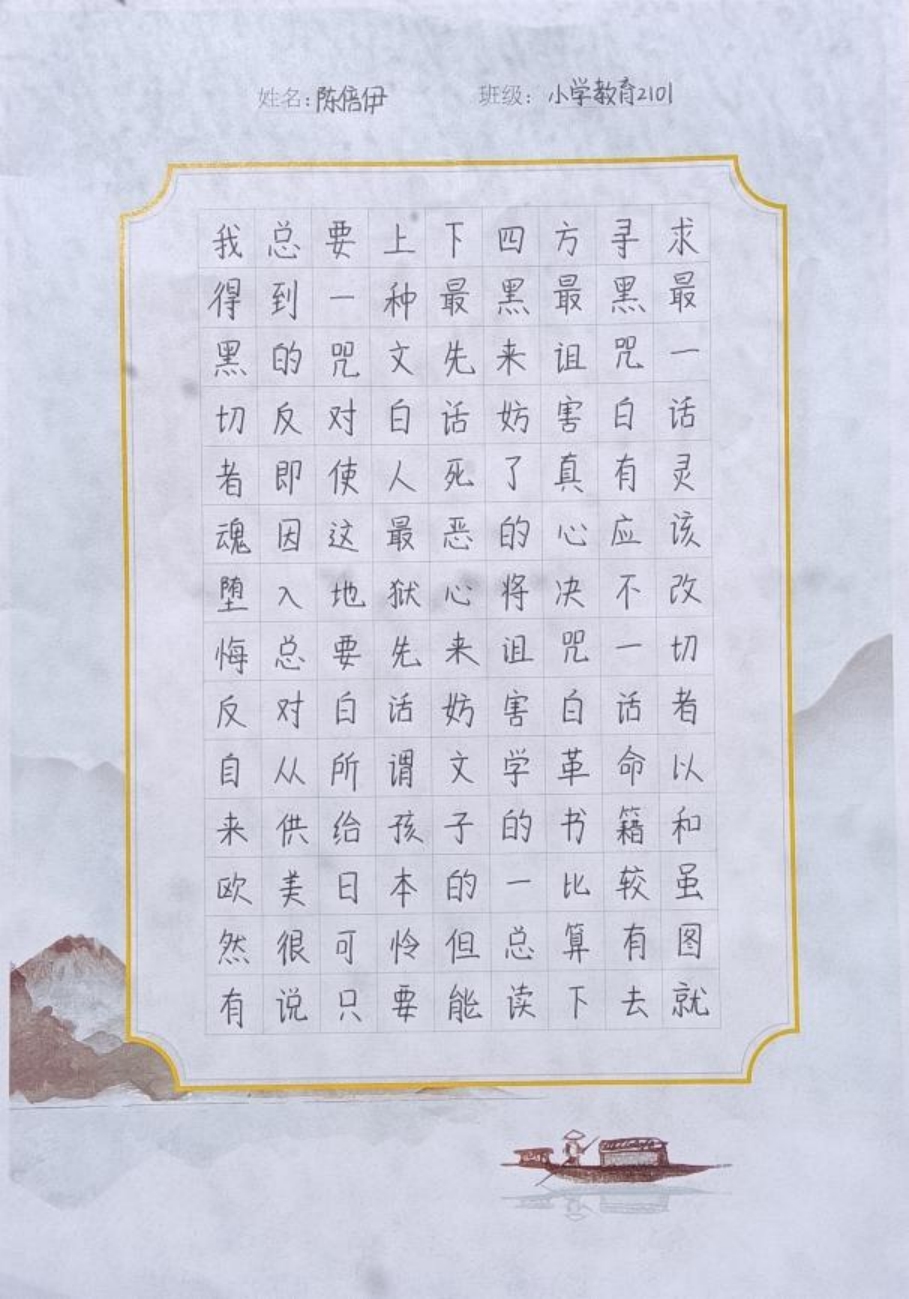 姓名:陈倍伊 班级:小学教育2101
我总要上下四方寻求
得到一种最黑最黑最
黑的咒文先来诅咒一
切反对白话妨害白话
者即使人死了真有灵
魂因这最恶的心应该
堕入地狱心将决不改
悔总要先来诅咒一切
反对白话妨害白话者
自从所谓文学革命以
来供给孩子的书籍和
欧美日本的一比较虽
然很可怜但总算有图
有说只要能读下去就